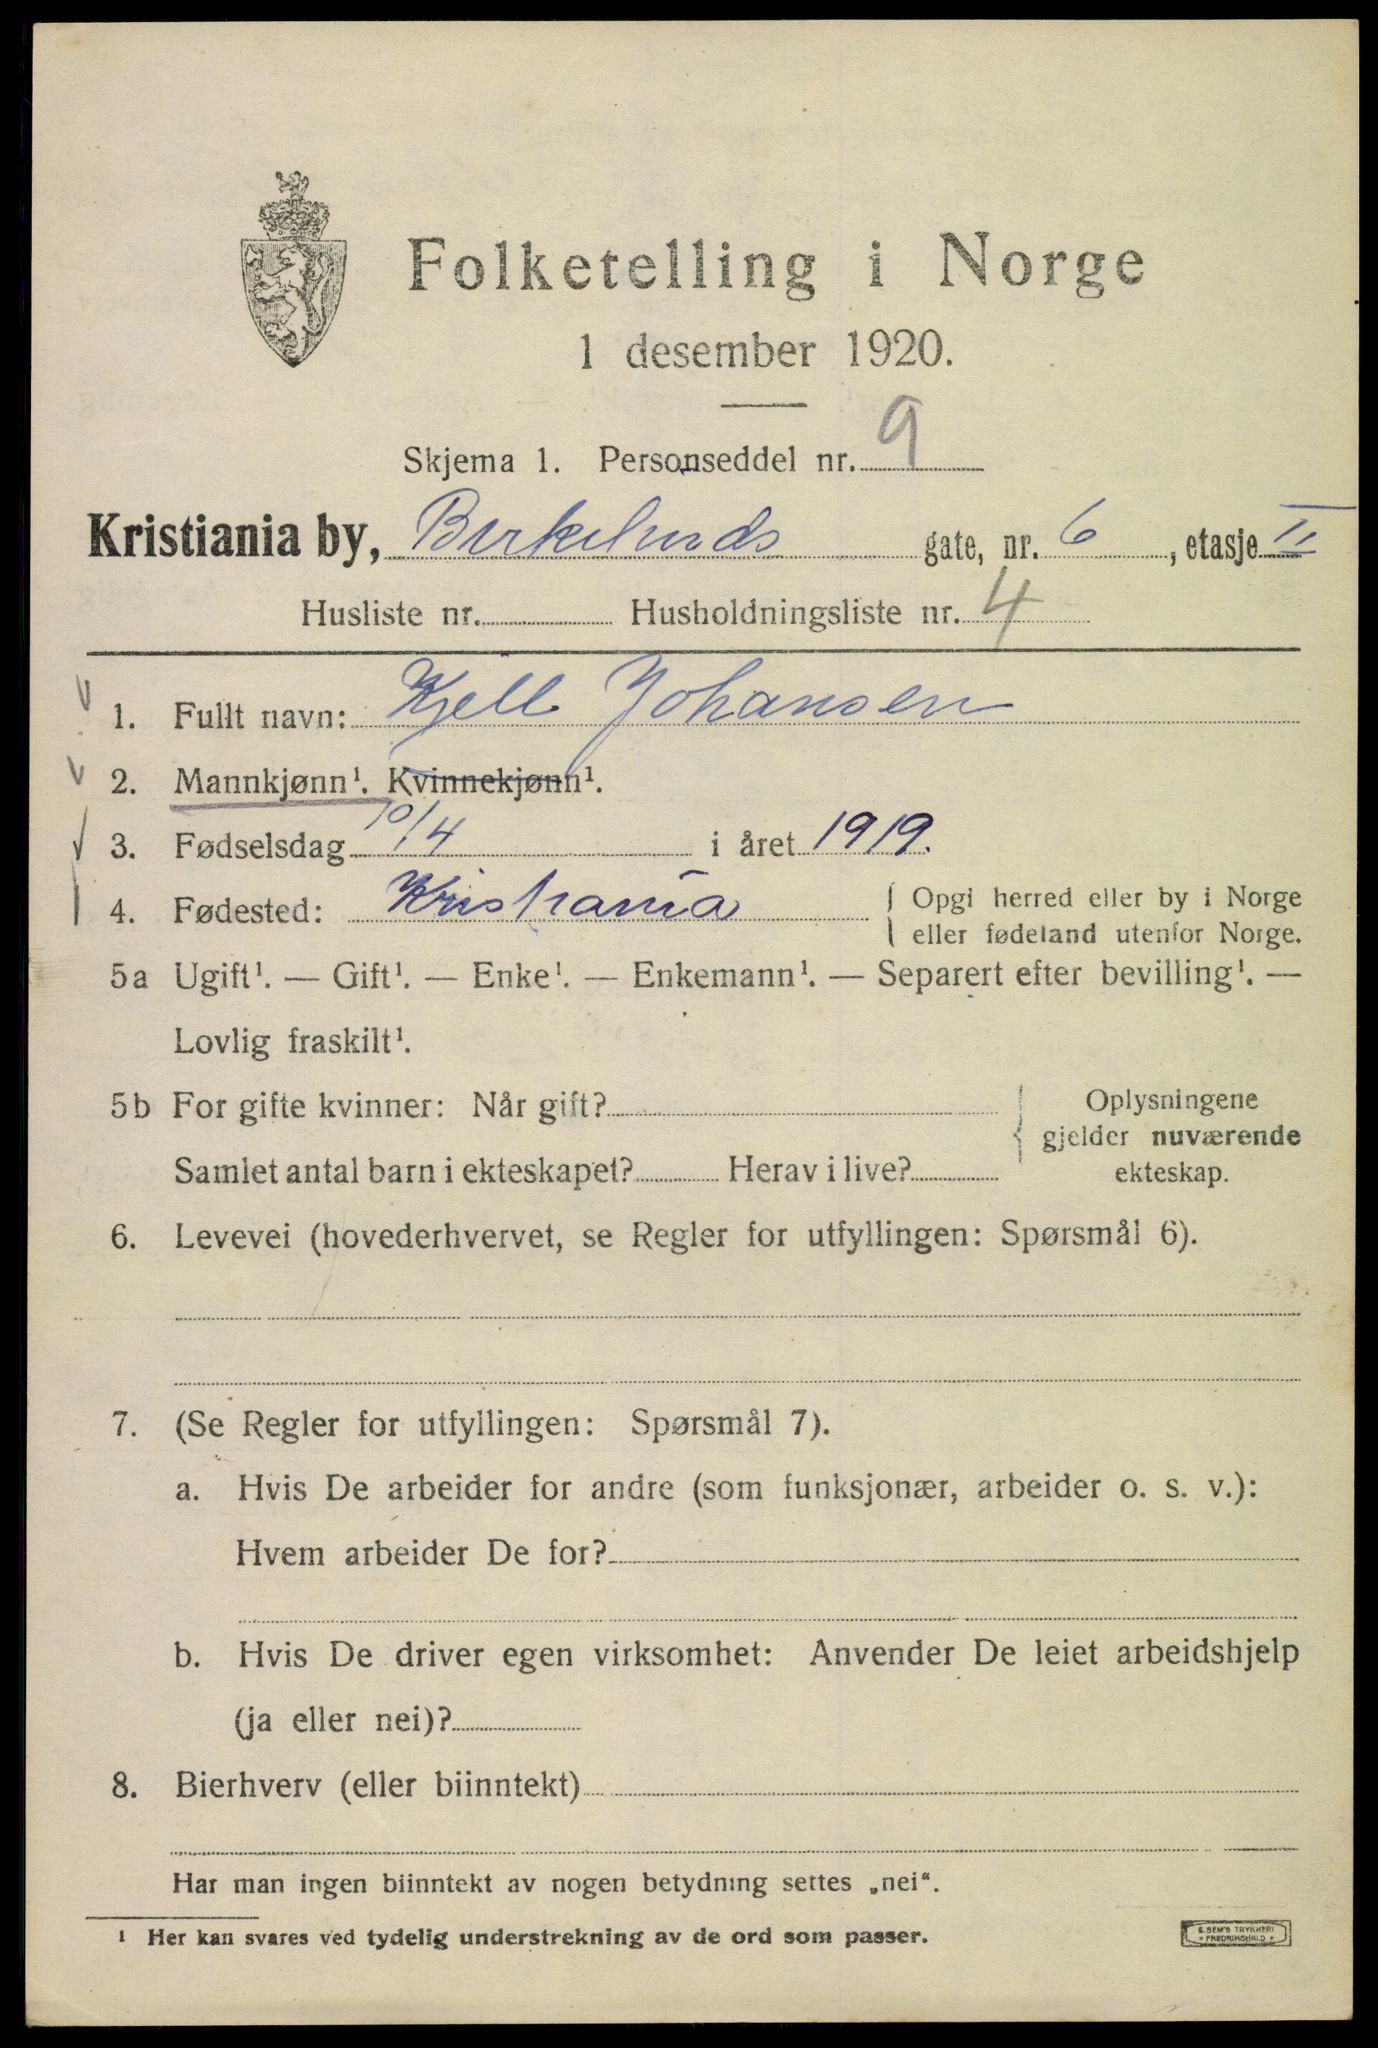 Folketelling i Norge
1 desember 1920.
Skjema 1. Personseddel nr. 9
Kristiania by, Birkelunds gate, nr. 6, etasje II
Husliste nr. Husholdningsliste nr. 4
1. Fullt navn: Kjell Johansen
2. Mannkjønn¹. Kvinnekjønn¹.
3. Fødselsdag 10/4 i året 1919.
4. Fødested: Kristiania { Opgi herred eller by i Norge
eller fødeland utenfor Norge.
5a Ugift¹. — Gift¹. — Enke¹. — Enkemann¹. — Separert efter bevilling¹. —
Lovlig fraskilt¹.
5b For gifte kvinner: Når gift? { Oplysningene
gjelder nuværende
Samlet antal barn i ekteskapet? Herav i live? ekteskap.
6. Levevei (hovederhvervet, se Regler for utfyllingen: Spørsmål 6).
7. (Se Regler for utfyllingen: Spørsmål 7).
a. Hvis De arbeider for andre (som funksjonær, arbeider o. s. v.):
Hvem arbeider De for?
b. Hvis De driver egen virksomhet: Anvender De leiet arbeidshjelp
(ja eller nei)?
8. Bierhverv (eller biinntekt)
Har man ingen biinntekt av nogen betydning settes „nei“.
¹ Her kan svares ved tydelig understrekning av de ord som passer.
E. SEM'S TRYKKERI
FREDRIKSHALD